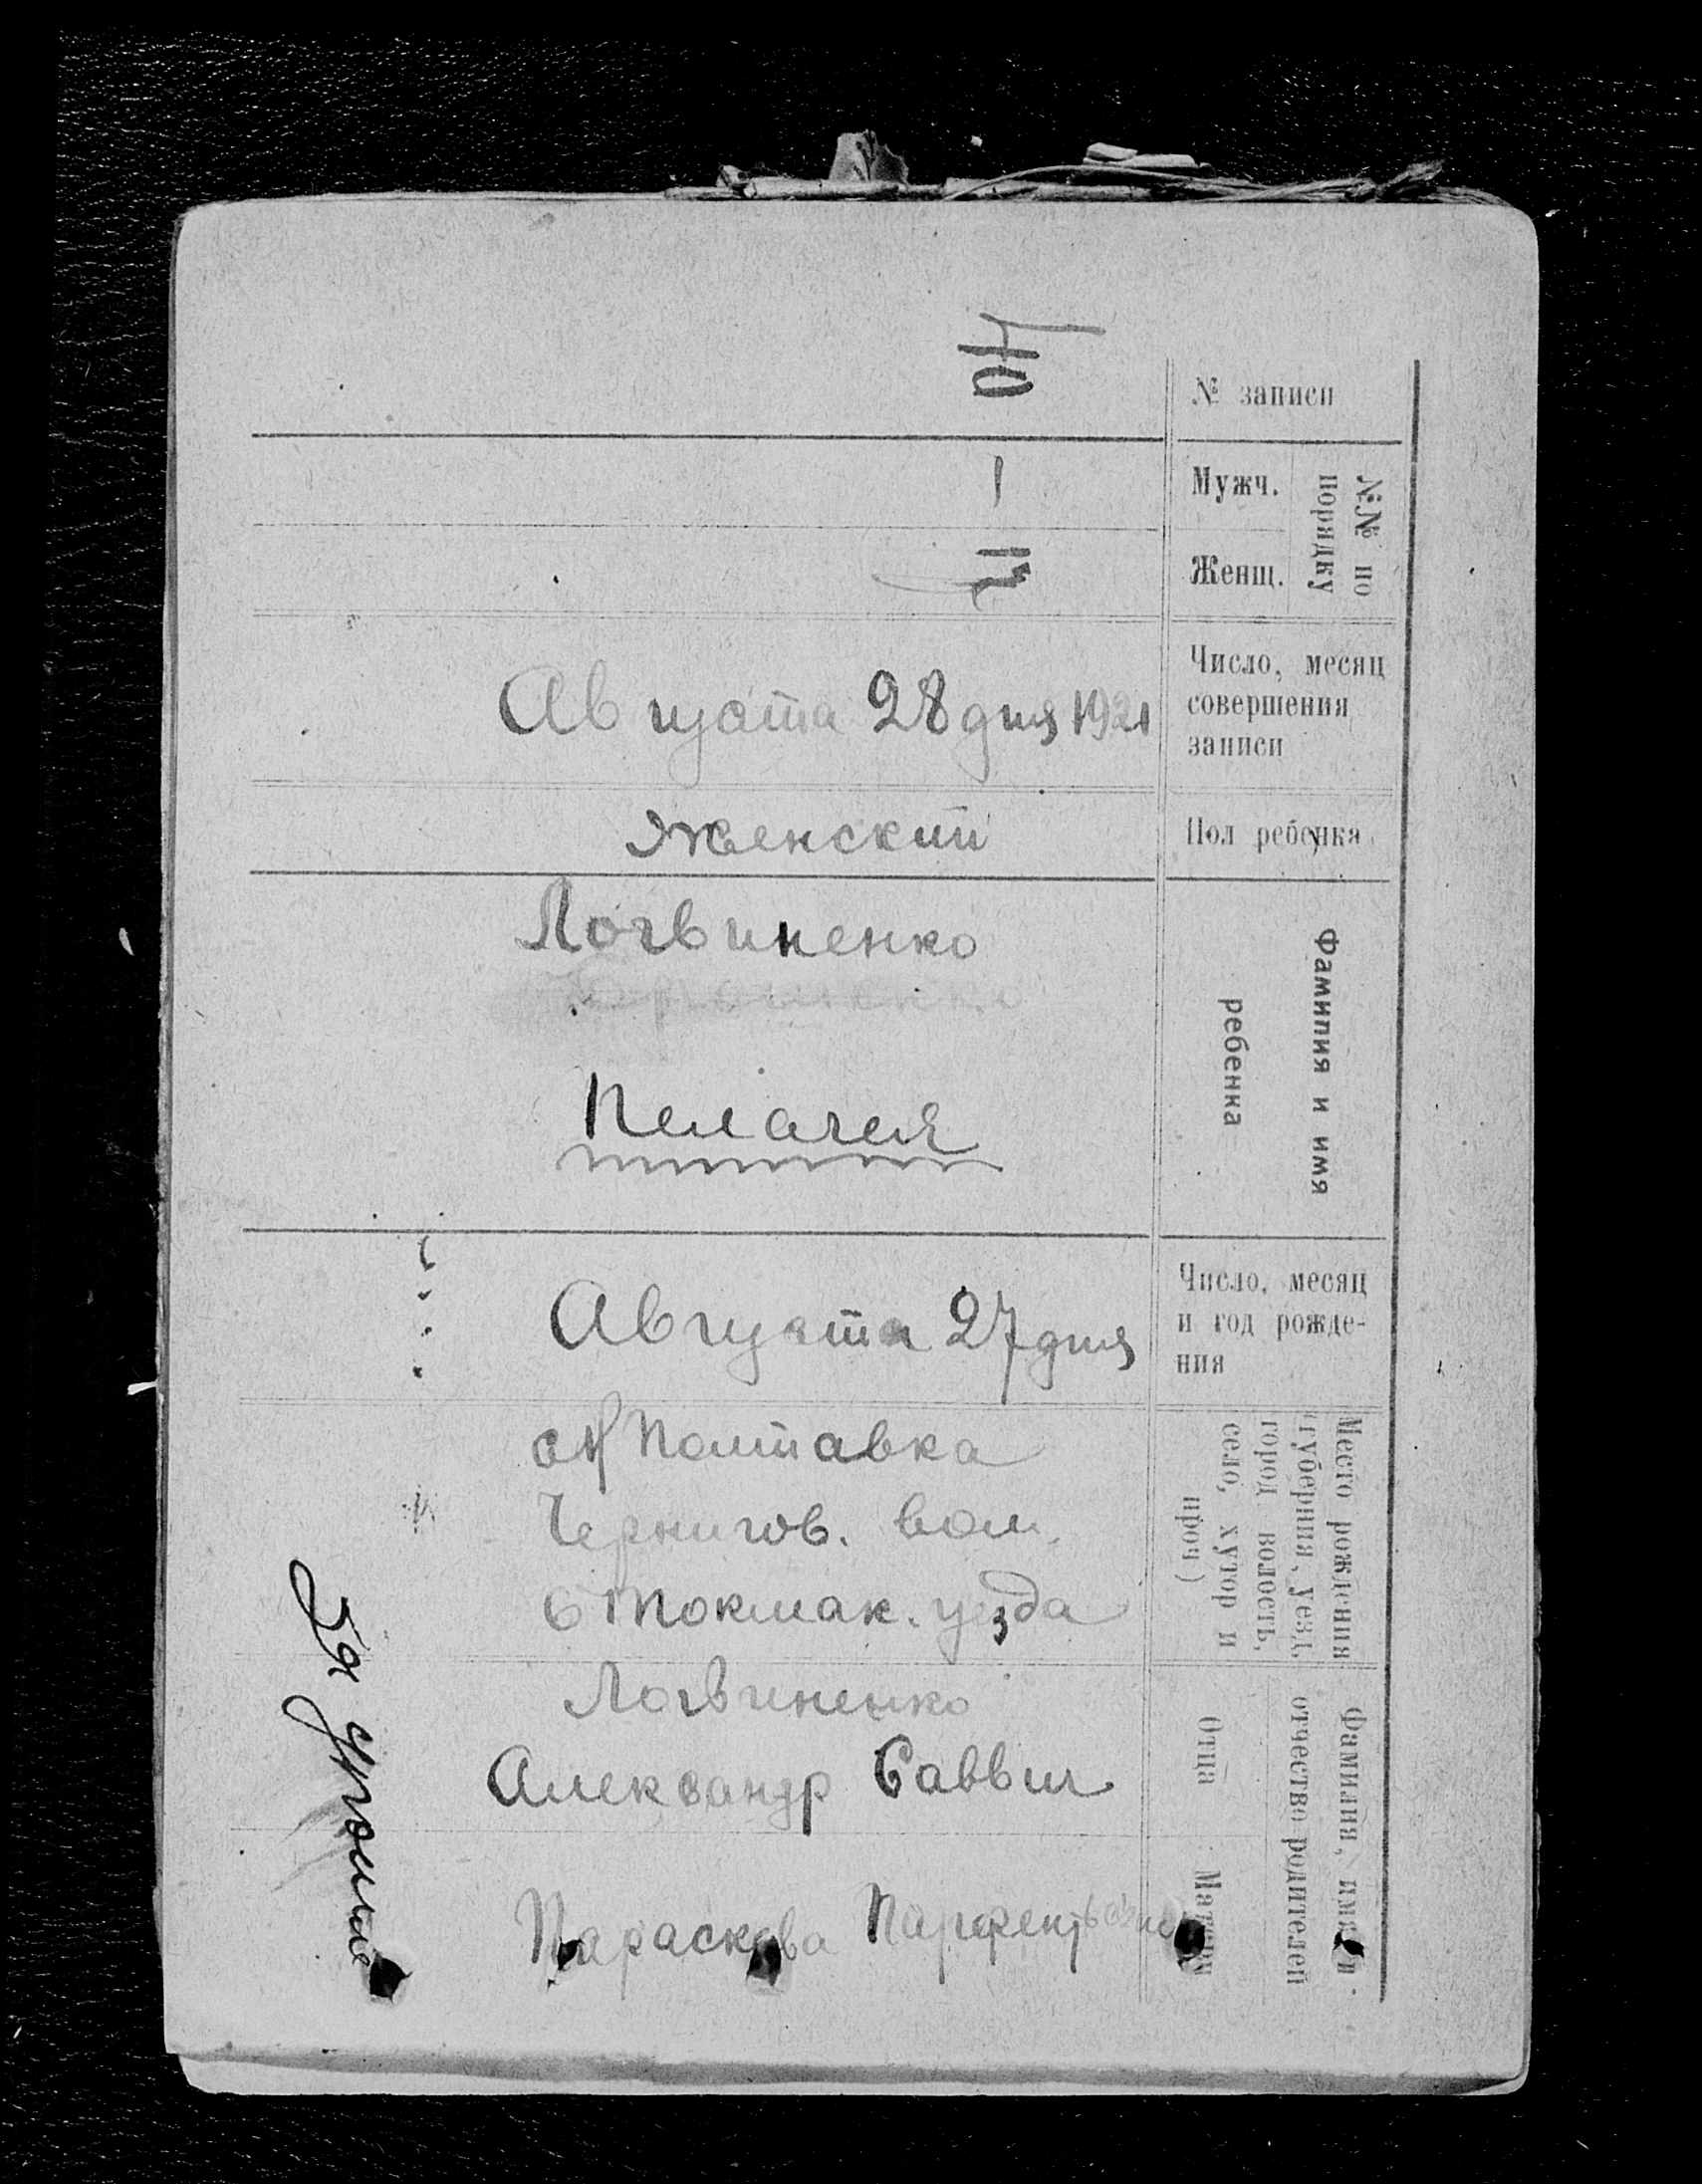 № записи
№№ по
порядку
Мужч.
Женщ.
Число, месяц
совершения
записи
Августа 28 дня 1921
Пол ребенка
женский
Фамилия и имя
ребенка
Логвиненко
Пелагея
Число, месяц
и год рожде-
ния
Августа 27 дня
Место рождения
(губерния, уезд,
город волость,
село, хутор и
проч)
Полтавка
Чернигов. вол.
Б Токмак. уезда
Фамилия, имя и
отчество родителей
Отца
Логвиненко
Александр Саввич
Матери
Параскева